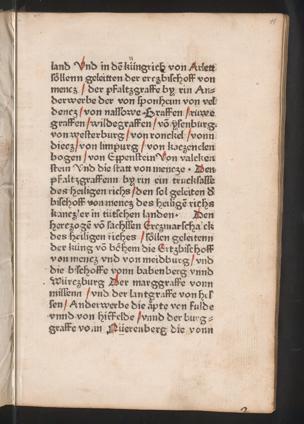 land Vnd in dē küngrich von Arlett
söllenn geleitten der erczbischoff von
mencz / der pfaltzgraffe by rin An-
derwerbe der von sponheim von vel
dencz / von nassowe Graffen / ruwe
graffen / wildegraffen / vō ysenburg
von westerburg / von ronckel / vonn
diecz / von limpurg / von kaczenelen
bogen / von Eppenstein Von valcken
stein Vnd die statt von mencze · Den
pfaltzgraffenn by rin ein trucksässß
des heiligen richs / den sol geleiten d
bischoff von mencz des heiligē richs
kanczler in tütschen landen · Den
herczogē vō sachssen Erczmarschalck
des heiligen riches / söllen geleitenn
der küng vō böhem die Ertzbischoff
von mencz vnd von meidburg / vnd
die bischoffe vonn babenberg vnnd
Würczburg Der marggraffe vonn
missenn / vnd der lantgraffe von hes
sen / Anderwerbe die äpte von fulde
vnnd von hirsfelde / vnnd der burg-
graffe vonn Nüerenberg die vonn